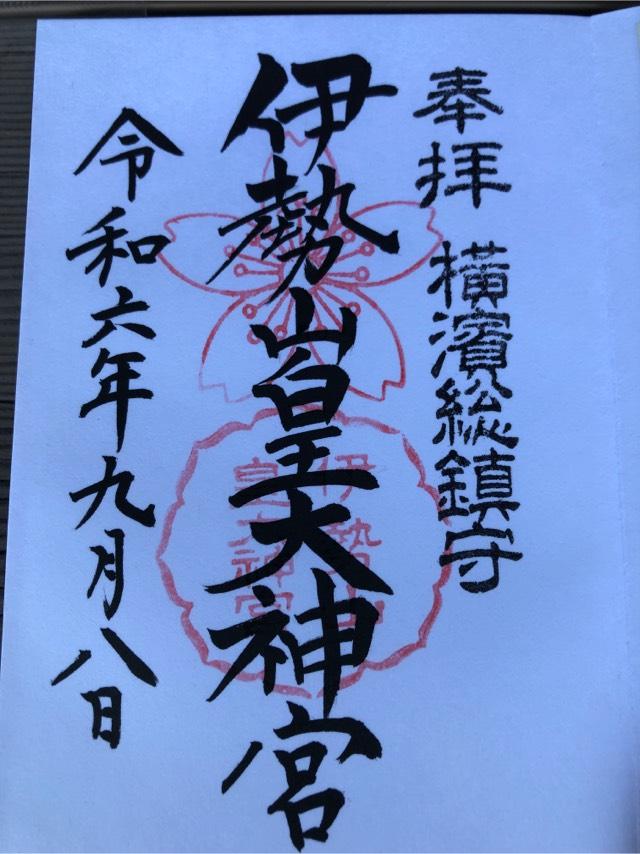 奉拝 横濱総鎮守
伊勢山皇大神宮
伊勢山
皇大神宮
令和六年九月八日